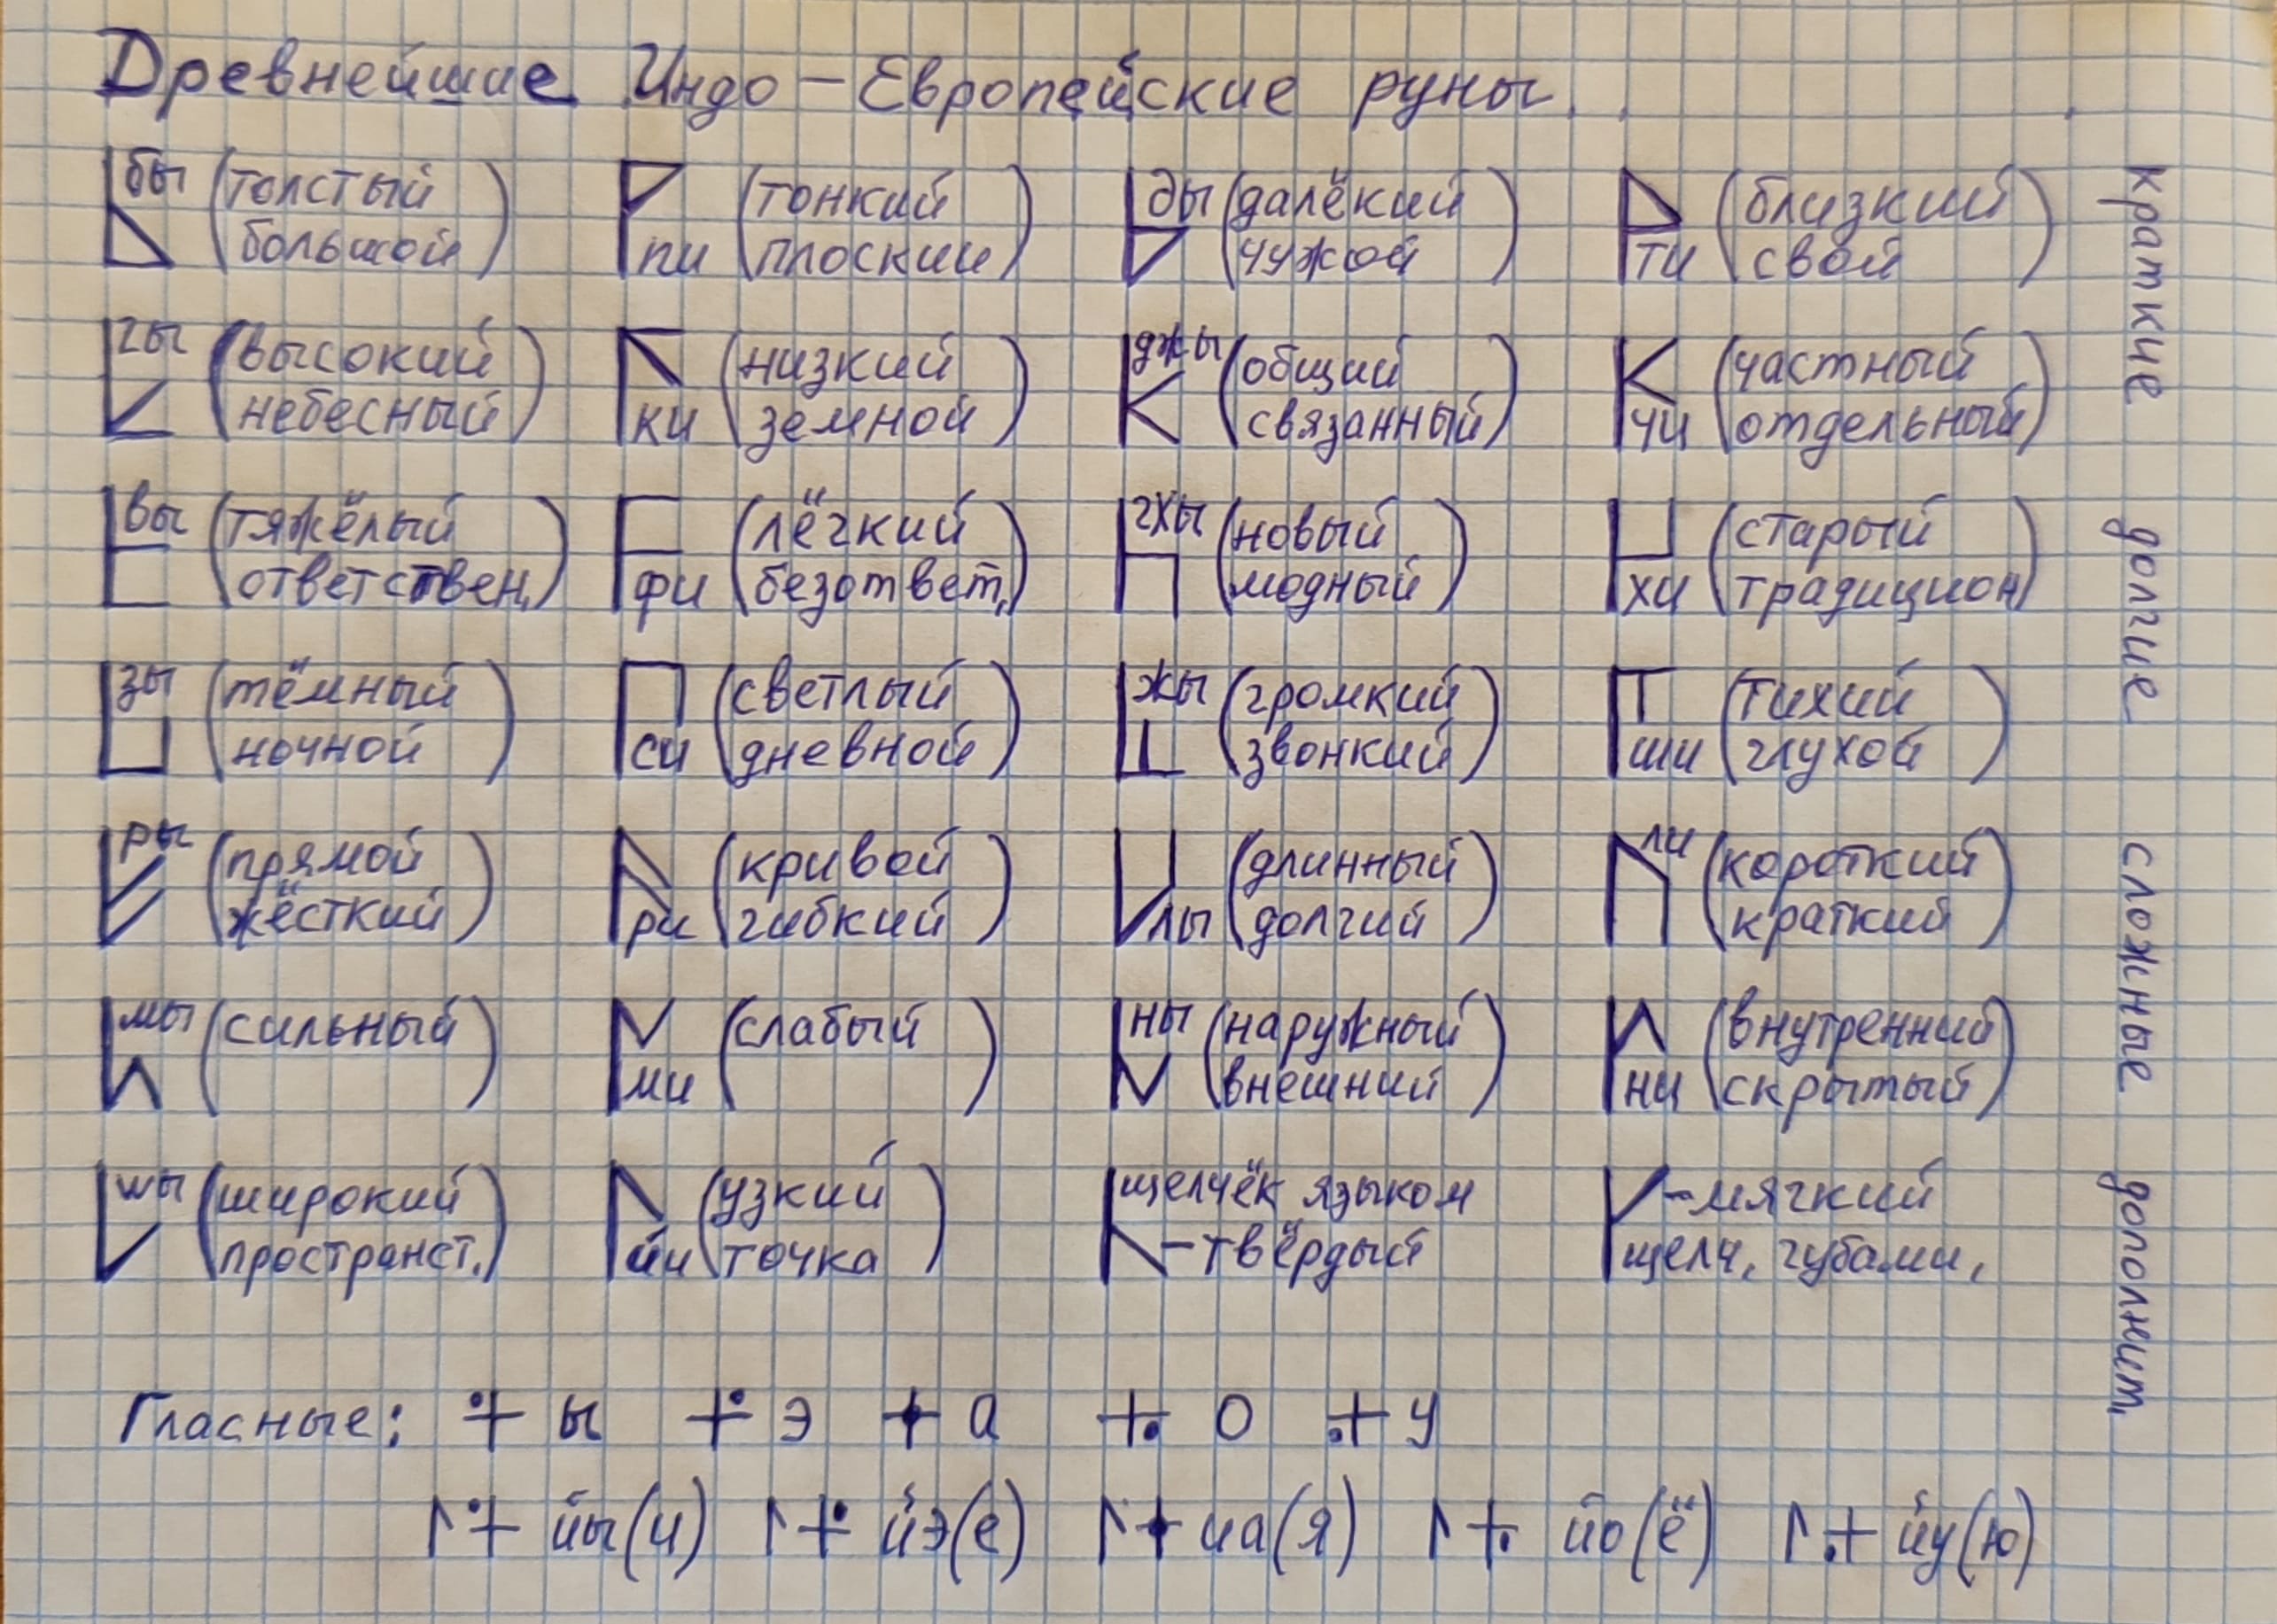 Древнейшие Индо-Европейские руны.
бы (толстый большой)
пи (тонкий плоский)
ды (далёкий чужой)
ти (близкий свой)
гы (высокий небесный)
ки (низкий земной)
джы (общий связанный)
чи (частный отдельный)
вы (тяжёлый ответствен.)
фи (лёгкий безответ.)
гхы (новый модный)
хи (старый традицион)
зы (тёмный ночной)
си (светлый дневной)
жы (громкий звонкий)
ши (тихий глухой)
ры (прямой жёсткий)
ри (кривой гибкий)
лы (длинный долгий)
ли (короткий краткий)
мы (сильный)
ми (слабый)
ны (наружный внешний)
ни (внутренний скрытый)
wы (широкий пространст.)
йи (узкий точка)
щелчёк языком - твёрдый
- мягкий щелч. губами.
краткие
долгие
сложные
дополнит.
Гласные: ы э а о у
йы(и) йэ(е) йа(я) йо(ё) йу(ю)